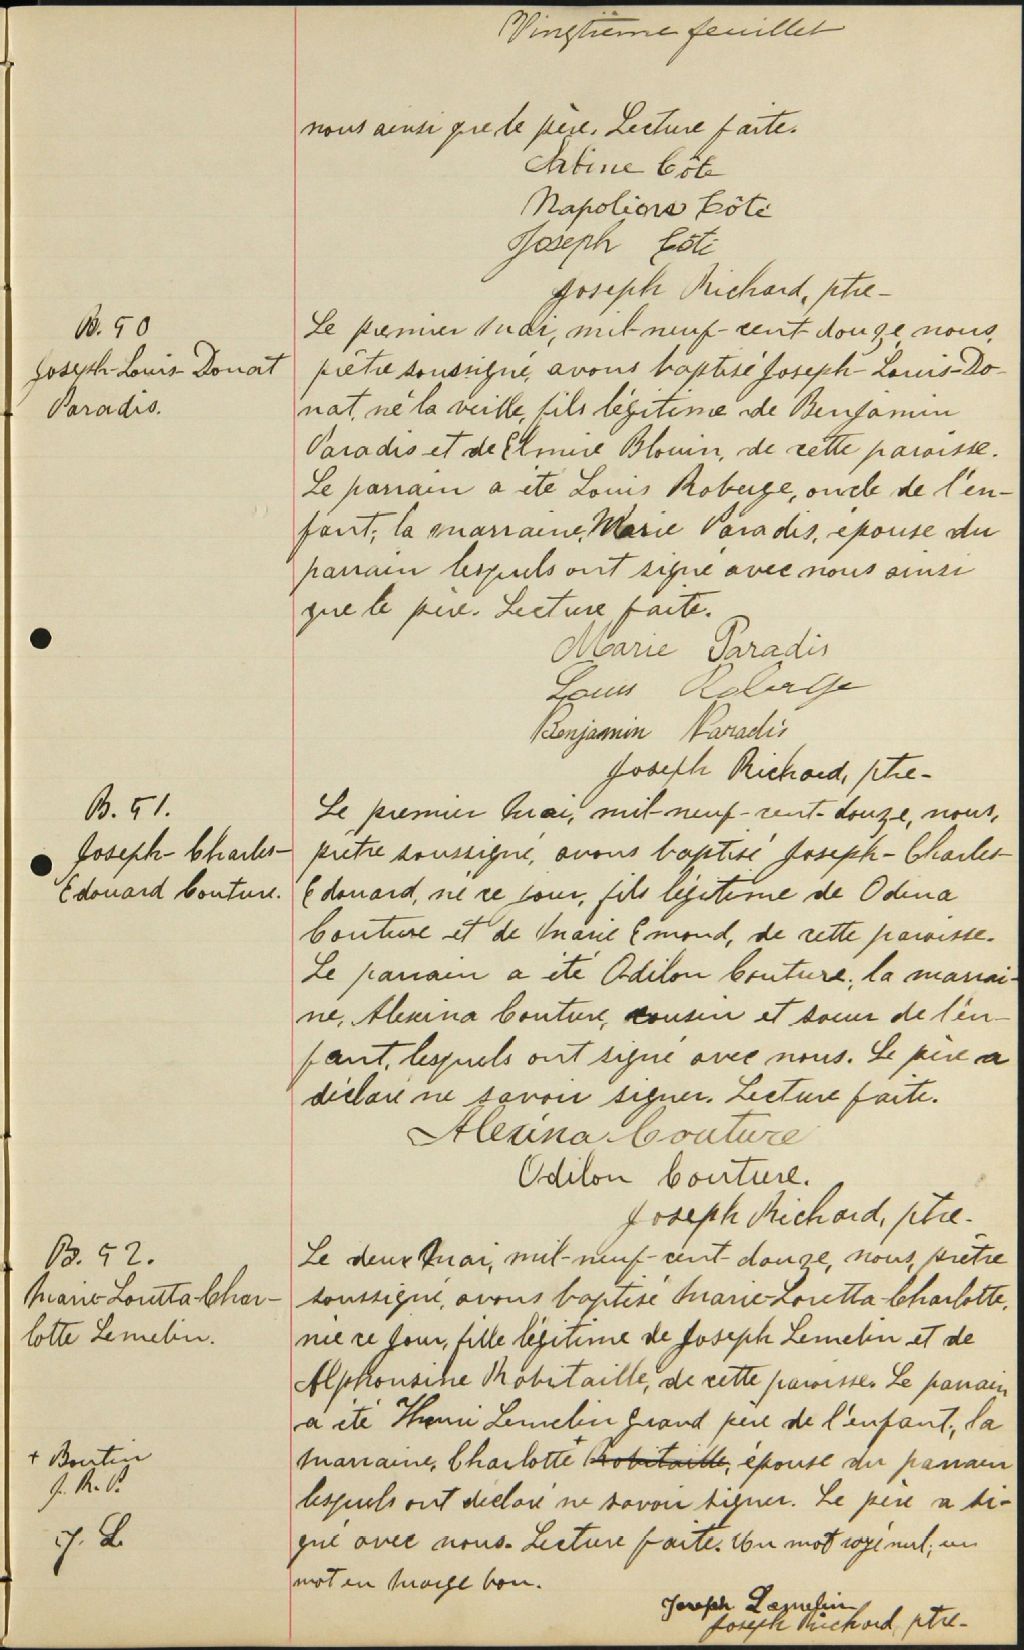 Vingtième feuillet
nous ainsi que le père. Lecture faite.
Côté
Napoléon Côté
Joseph Côté
Joseph Richard, ptre-
B. 50
Joseph-Louis-Donat
Paradis.
Le premier mai, mil-neuf-cent-douze, nous,
prêtre soussigné, avons baptisé Joseph-Louis-Do-
nat, né la veille, fils légitime de Benjamin
Paradis et de Elmire Blouin, de cette paroisse.
Le parrain a été Louis Roberge, oncle de l'en-
fant; la marraine, Marie Paradis, épouse du
parrain lesquels ont signé avec nous ainsi
que le père. Lecture faite.
Marie Paradis
Louis Roberge
Benjamin Paradis
Joseph Richard, ptre-
B. 51.
Joseph-Charles-
Edouard Couture.
Le premier mai, mil-neuf-cent-douze, nous,
prêtre soussigné, avons baptisé Joseph-Charles-
Edouard, né ce jour, fils légitime de Odina
Couture et de Marie Emond, de cette paroisse.
Le parrain a été Odilon Couture; la marrai-
ne, Alexina Couture, cousin et soeur de l'en-
fant, lesquels ont signé avec nous. Le père a
déclaré ne savoir signer. Lecture faite.
Alexina Couture
Odilon Couture.
Joseph Richard, ptre-
B. 52.
Marie-Loretta-Char-
lotte Lemelin.
Le deux mai, mil-neuf-cent-douze, nous, prêtre
soussigné, avons baptisé Marie-Loretta-Charlotte,
née ce jour, fille légitime de Joseph Lemelin et de
Alphonsine Robitaille, de cette paroisse. Le parrain
a été Henri Lemelin grand père de l'enfant; la
marraine, Charlotte + Robitaille, épouse du parrain
lesquels ont déclaré ne savoir signer. Le père a si-
gné avec nous. Lecture faite. Un mot rayé nul; un
mot en marge bon.
+ Boutin
J. R. P.
J. L.
Joseph Lemelin
Joseph Richard, ptre-